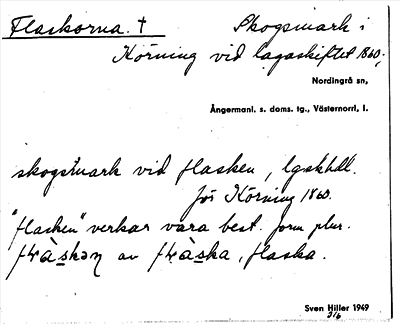 Flaskorna. † Skogsmark i
Körning vid lagaskiftet 1860;
Nordingrå sn,
Ångermanl. s. doms. tg., Västernorrl. l.
skogsmark vid flasken, lgskhdl.
för Körning 1860.
"flasken" verkar vara best. form plur.
av
, flaska.
Sven Hiller 1949